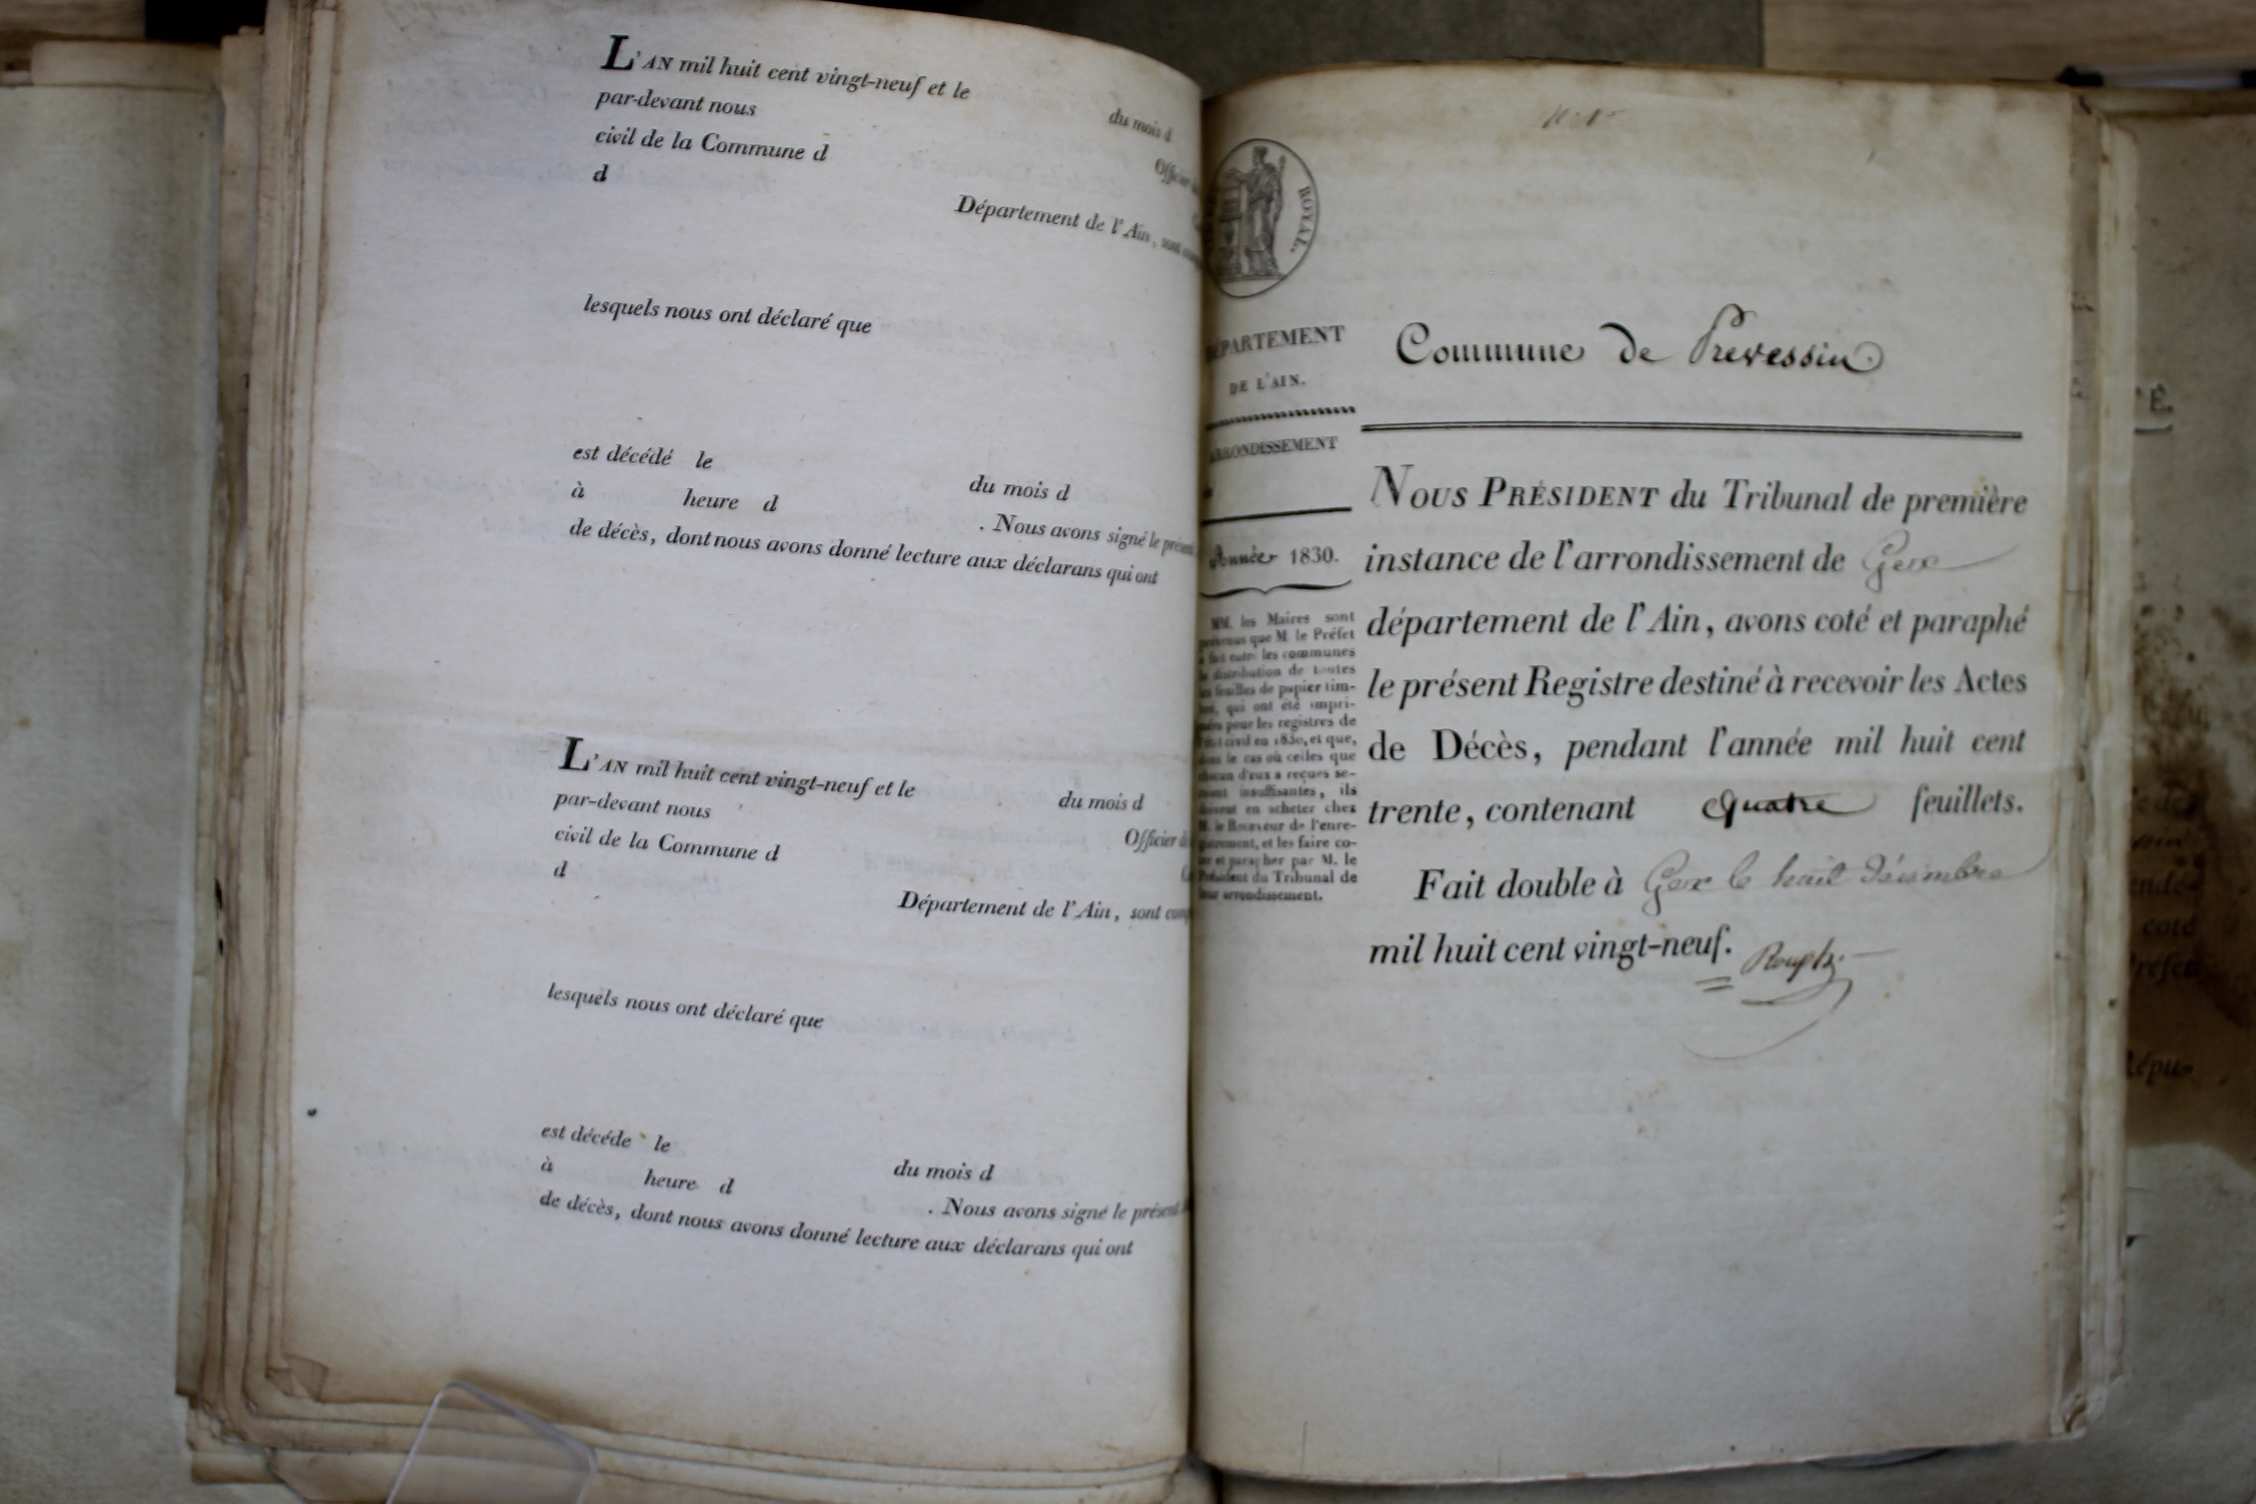 L'AN mil huit cent vingt-neuf et le
du mois d
par-devant nous
Officier
civil de la Commune d
d
Département de l'Ain, sont
lesquels nous ont déclaré que
est décédé le
du mois d
à heure d
. Nous avons signé le présent
de décès, dont nous avons donné lecture aux déclarans qui ont
L'AN mil huit cent vingt-neuf et le
du mois d
par-devant nous
Officier
civil de la Commune d
d
Département de l'Ain, sont
lesquels nous ont déclaré que
est décéde le
du mois d
à heure d
. Nous avons signé le présent
de décès, dont nous avons donné lecture aux déclarans qui ont
ROYAL.
DÉPARTEMENT
DE L'AIN.
ARRONDISSEMENT
Année 1830.
MM. les Maires sont
prévenus que M. le Préfet
a fait entre les communes
la distribution de toutes
les feuilles de papier tim-
bré, qui ont été impri-
mées pour les registres de
l'état civil en 1830, et que,
dans le cas où celles que
chacun d'eux a reçues se-
roient insuffisantes, ils
doivent en acheter chez
M. le Receveur de l'enre-
gistrement, et les faire co-
ter et parapher par M. le
Président du Tribunal de
leur arrondissement.
Commune de Prevessin
NOUS PRÉSIDENT du Tribunal de première
instance de l'arrondissement de Gex
département de l'Ain, avons coté et paraphé
le présent Registre destiné à recevoir les Actes
de Décès, pendant l'année mil huit cent
trente, contenant quatre feuillets.
Fait double à Gex le huit décembre
mil huit cent vingt-neuf.
É.
coté
Répu-